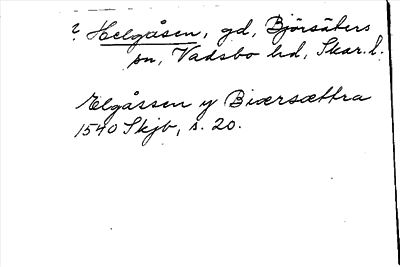 ? Helgåsen, gd, Björsäters
sn, Vadsbo hd, Skar. l.
Elgåssen y Biærsættra
1540 Skjb, s. 20.